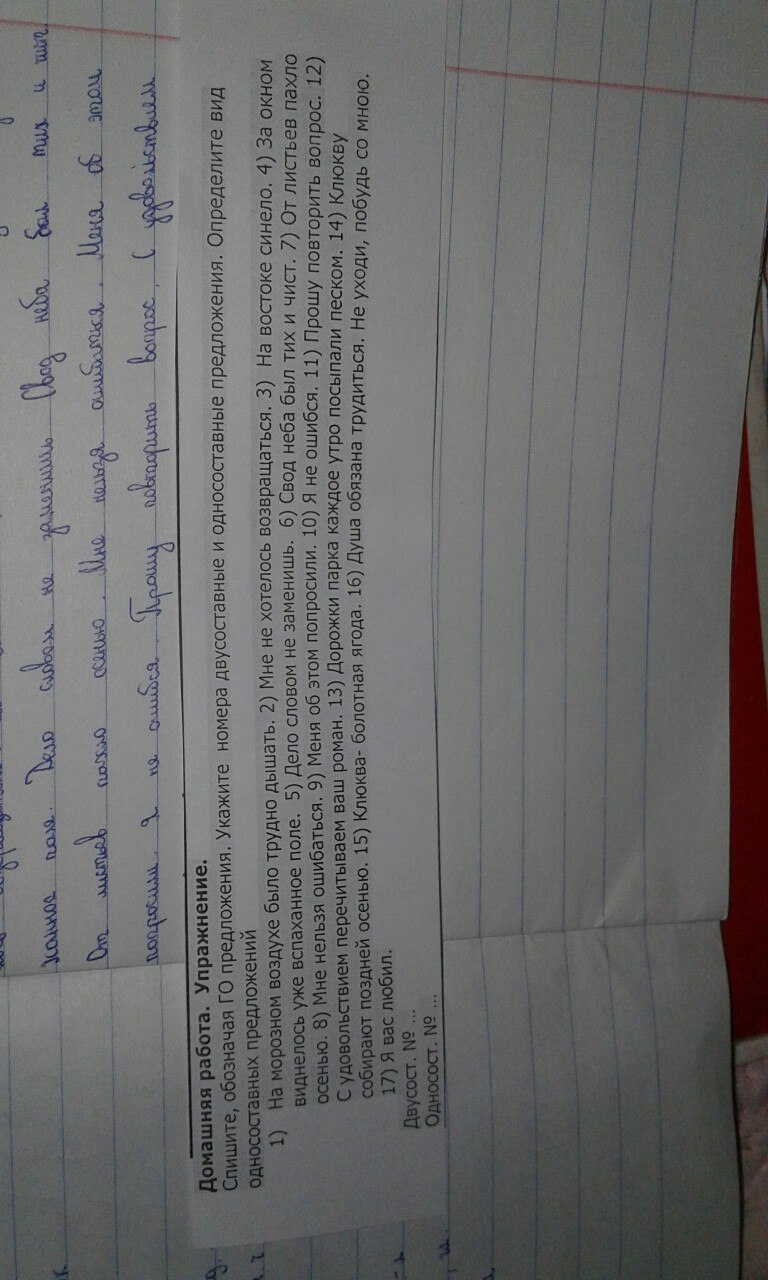 жанное поле. Дело словом не заменишь Свод неба был тих и чист.
От листьев пахло осенью. Мне нельзя ошибаться. Меня об этом
попросили. Я не ошибся. Прошу повторить вопрос. С удовольствием
Домашняя работа. Упражнение.
Спишите, обозначая ГО предложения. Укажите номера двусоставные и односоставные предложения. Определите вид
односоставных предложений
1) На морозном воздухе было трудно дышать. 2) Мне не хотелось возвращаться. 3) На востоке синело. 4) За окном
виднелось уже вспаханное поле. 5) Дело словом не заменишь. 6) Свод неба был тих и чист. 7) От листьев пахло
осенью. 8) Мне нельзя ошибаться. 9) Меня об этом попросили. 10) Я не ошибся. 11) Прошу повторить вопрос. 12)
С удовольствием перечитываем ваш роман. 13) Дорожки парка каждое утро посыпали песком. 14) Клюкву
собирают поздней осенью. 15) Клюква- болотная ягода. 16) Душа обязана трудиться. Не уходи, побудь со мною.
17) Я вас любил.
Двусост. № ...
Односост. № ...